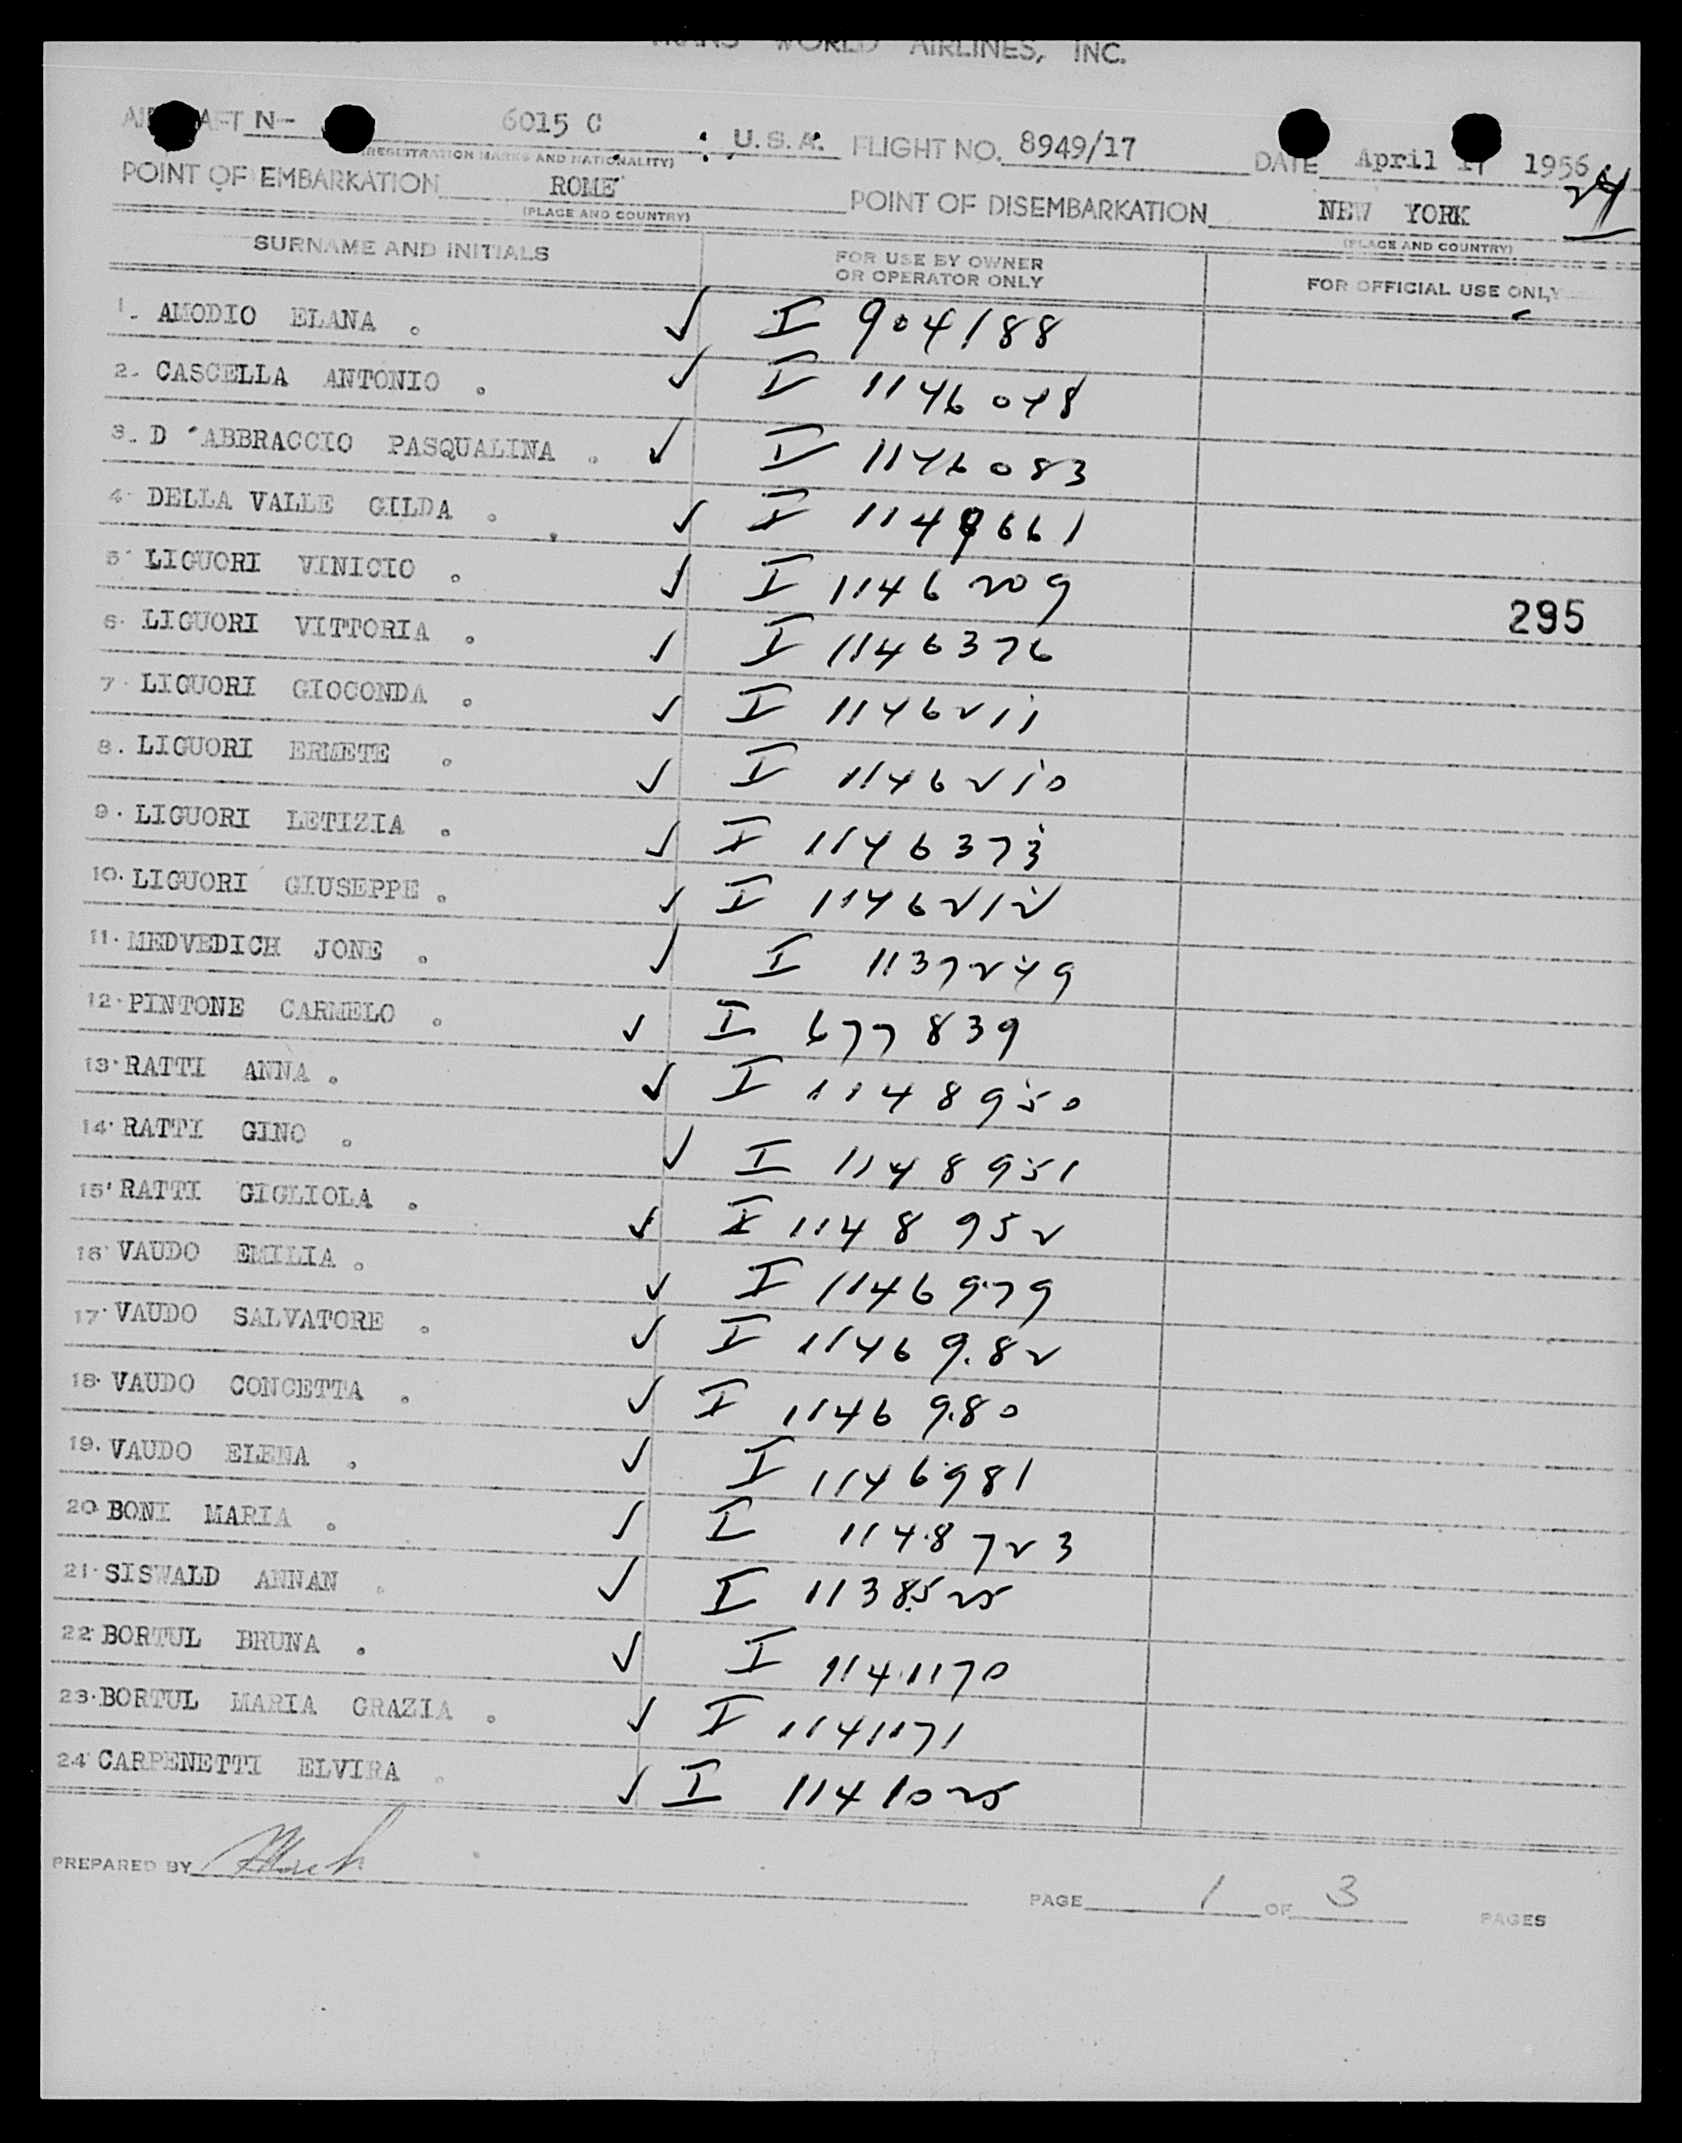 TRANS WORLD AIRLINES, INC.
AIRCRAFT N- 6015 C U.S.A. FLIGHT NO. 8949/17 DATE April 17 1956
(REGISTRATION MARKS AND NATIONALITY)
POINT OF EMBARKATION ROME POINT OF DISEMBARKATION NEW YORK 24
(PLACE AND COUNTRY) (PLACE AND COUNTRY)
SURNAME AND INITIALS FOR USE BY OWNER OR OPERATOR ONLY FOR OFFICIAL USE ONLY
1. AMODIO ELANA . ✓ I 904188
2. CASCELLA ANTONIO . ✓ I 1146048
3. D'ABBRACCIO PASQUALINA . ✓ I 1146083
4. DELLA VALLE GILDA . ✓ I 1149661
5. LIGUORI VINICIO . ✓ I 1146209
295
6. LIGUORI VITTORIA . ✓ I 1146376
7. LIGUORI GIOCONDA . ✓ I 1146211
8. LIGUORI ERMETE . ✓ I 1146210
9. LIGUORI LETIZIA . ✓ I 1146373
10. LIGUORI GIUSEPPE . ✓ I 1146212
11. MEDVEDICH JONE . ✓ I 1137249
12. PINTONE CARMELO . ✓ I 677839
13. RATTI ANNA . ✓ I 1148950
14. RATTI GINO . ✓ I 1148951
15. RATTI GIGLIOLA . ✓ I 1148952
16. VAUDO EMILIA . ✓ I 1146979
17. VAUDO SALVATORE . ✓ I 1146982
18. VAUDO CONCETTA . ✓ I 1146980
19. VAUDO ELENA . ✓ I 1146981
20. BONI MARIA . ✓ I 1148723
21. SISWALD ANNAN . ✓ I 1138525
22. BORTUL BRUNA . ✓ I 1141170
23. BORTUL MARIA GRAZIA . ✓ I 1141171
24. CARPENETTI ELVIRA . ✓ I 1141025
PREPARED BY
PAGE 1 OF 3 PAGES